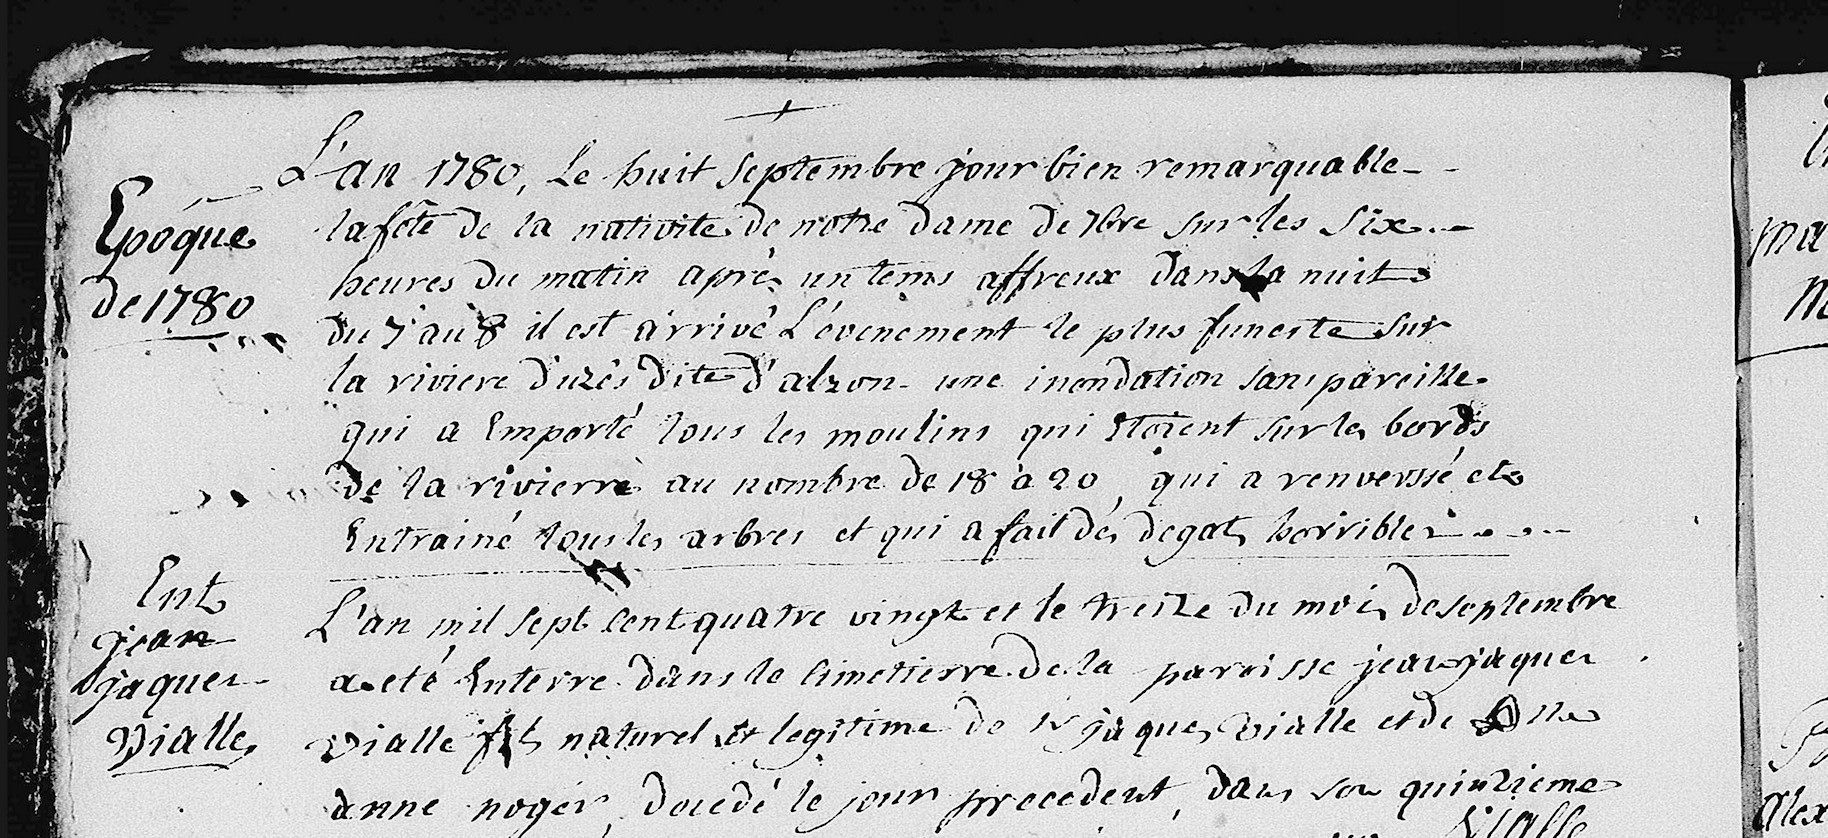 Epoque
de 1780
L'an 1780, Le huit Septembre jour bien remarquable
la fête de la nativite de notre dame de 7bre sur les six
heures du matin après un tems affreux dans la nuit
du 7 au 8 il est arrivé L'évenement le plus funeste sur
la riviere d'uzès dite d'alzon une inondation sans pareille
qui a Emporté tous les moulins qui Etoient sur les bords
de la rivierre au nombre de 18 à 20, qui a renversé et
Entrainé tous les arbres et qui a fait dés degats horribles
Ent
jean
jaques
Vialle
L'an mil sept cent quatre vingt et le treize du mois de septembre
a eté Enterré dans le cimetierre de la paroisse jean jaques
Vialle fils naturel et legitime de sr jaques Vialle et de Dlle
anne noger, decedé le jour precedent, dans son quinzieme
Vialle
ma
alex